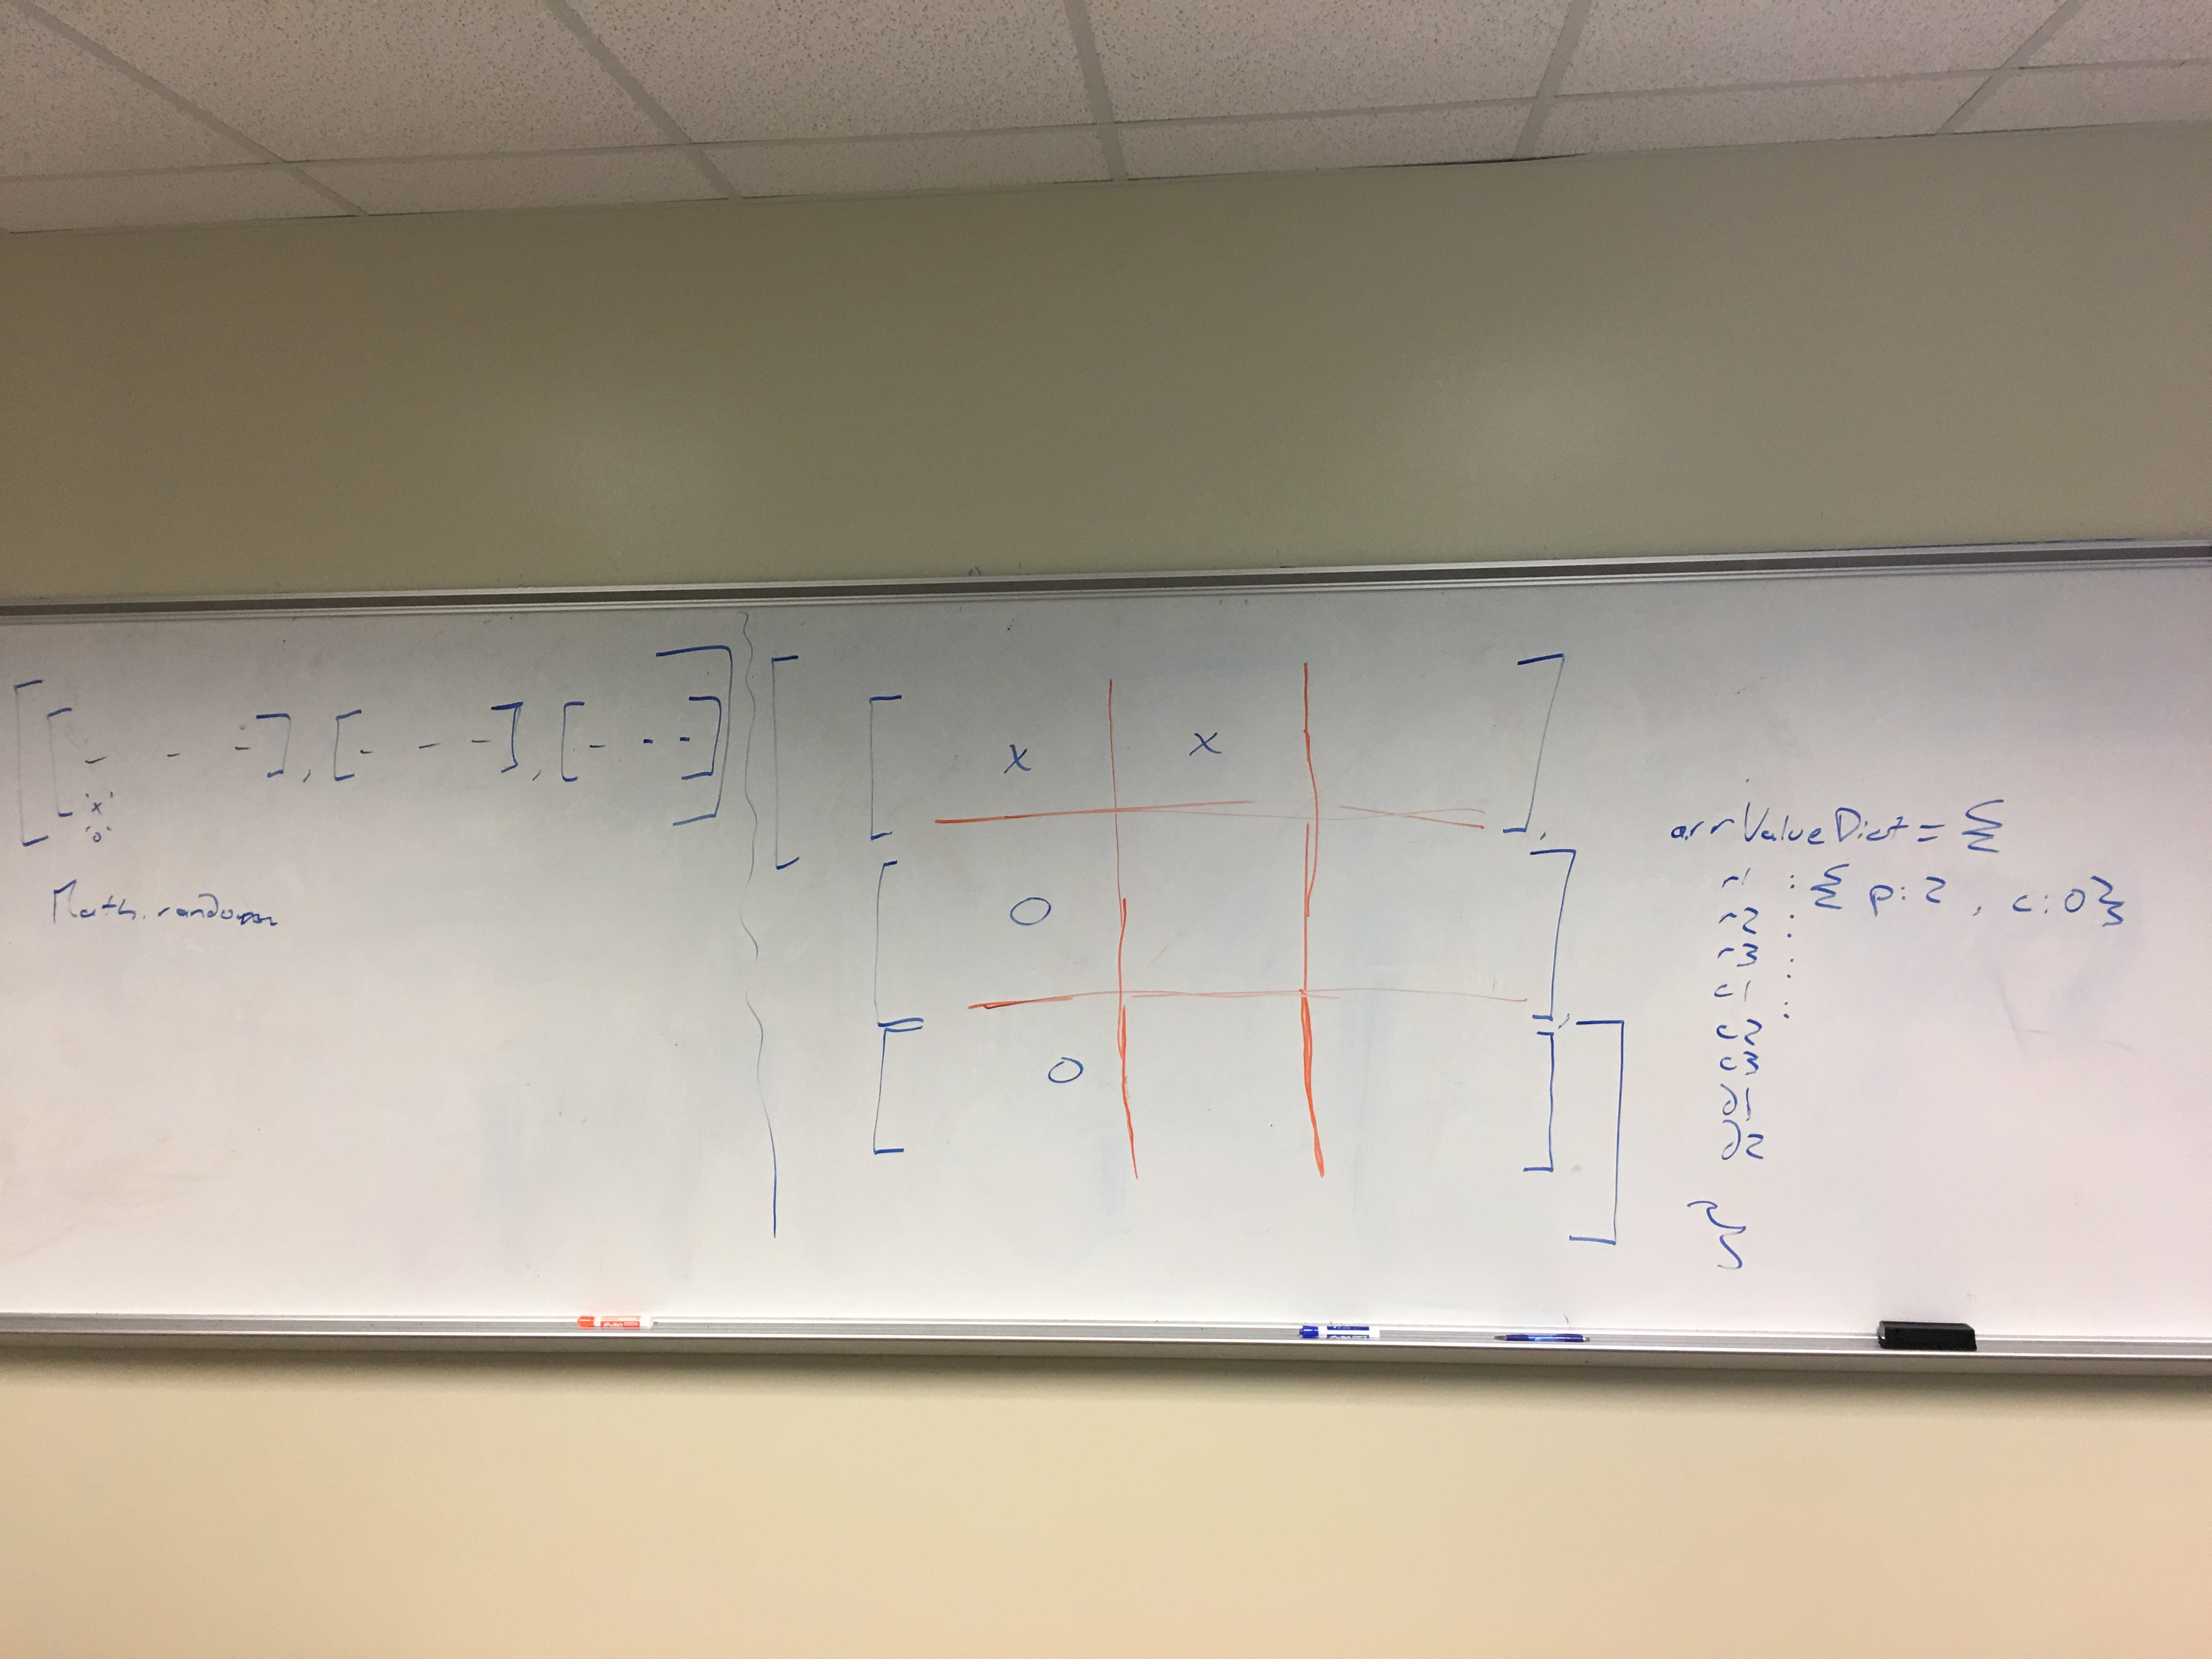 [[- - -], [- - -], [- - -]]
'x'
'o'
Math.random
[ [ x x ],
[ O ],
[ O ] ]
arrValueDict = {
r1 : { p: 2 , c: 0 }
r2 :
r3 :
c1 :
c2
c3
d1
d2
}